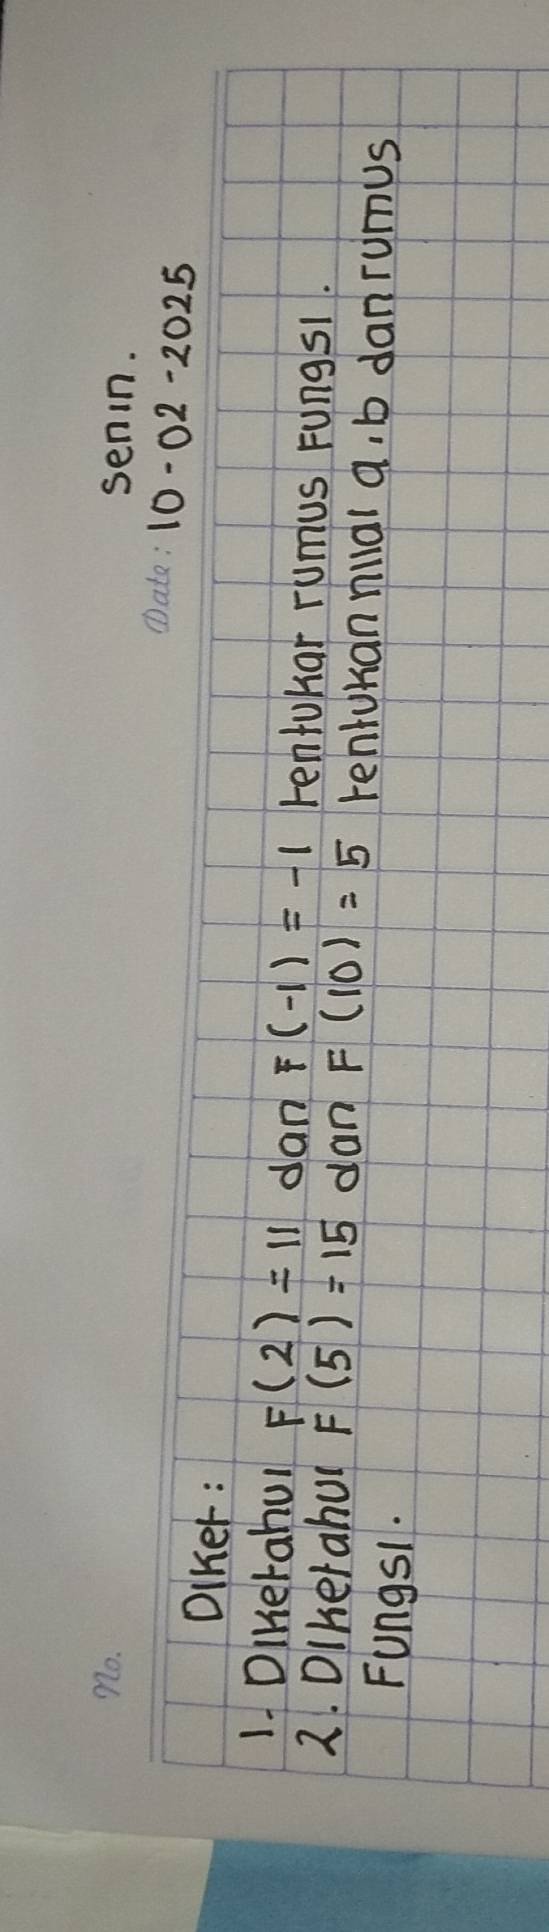 No.
Senin.
Date: 10-02-2025
Diket:
1. Diketahui F(2) = 11 dan F(-1) = -1 tentukar rumus Fungsi.
2. Diketahui F(5) = 15 dan F(10) = 5 tentukan nilai a,b dan rumus
Fungsi.